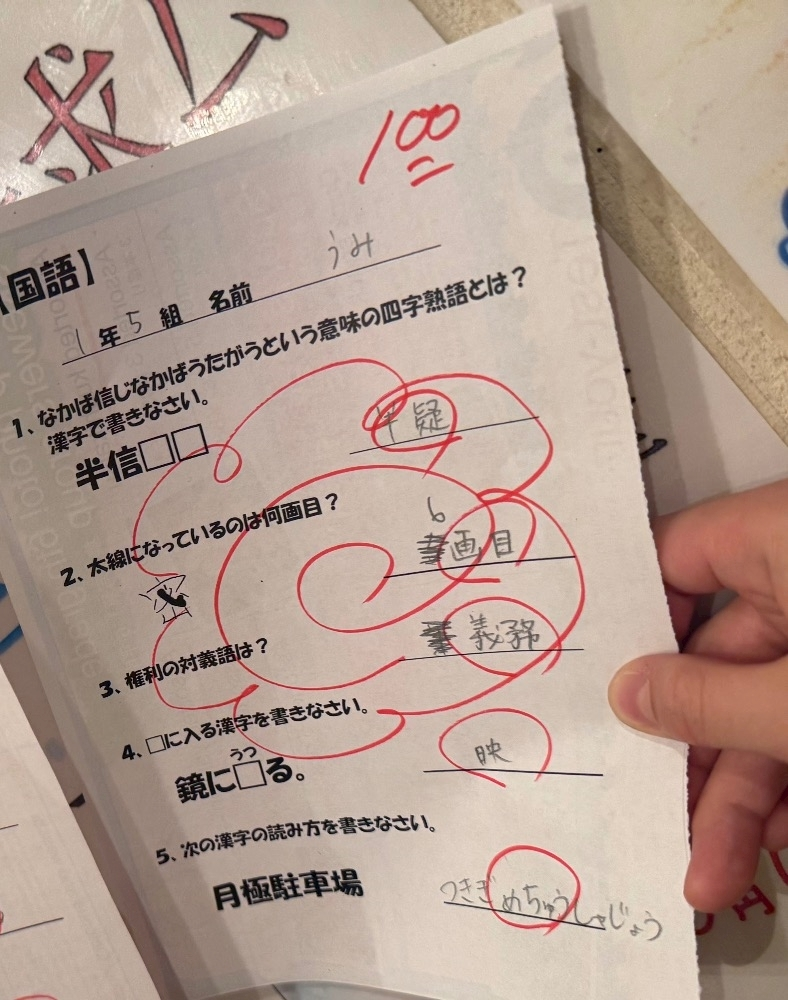 求ム
100
【国語】
1年5組 名前 うみ
1、なかば信じなかばうたがうという意味の四字熟語とは?
漢字で書きなさい。
半信□□
半疑
2、太線になっているのは何画目?
密
6画目
3、権利の対義語は?
義務
4、□に入る漢字を書きなさい。
うつ
鏡に□る。
映
5、次の漢字の読み方を書きなさい。
月極駐車場
つきぎめちゅうしゃじょう
円